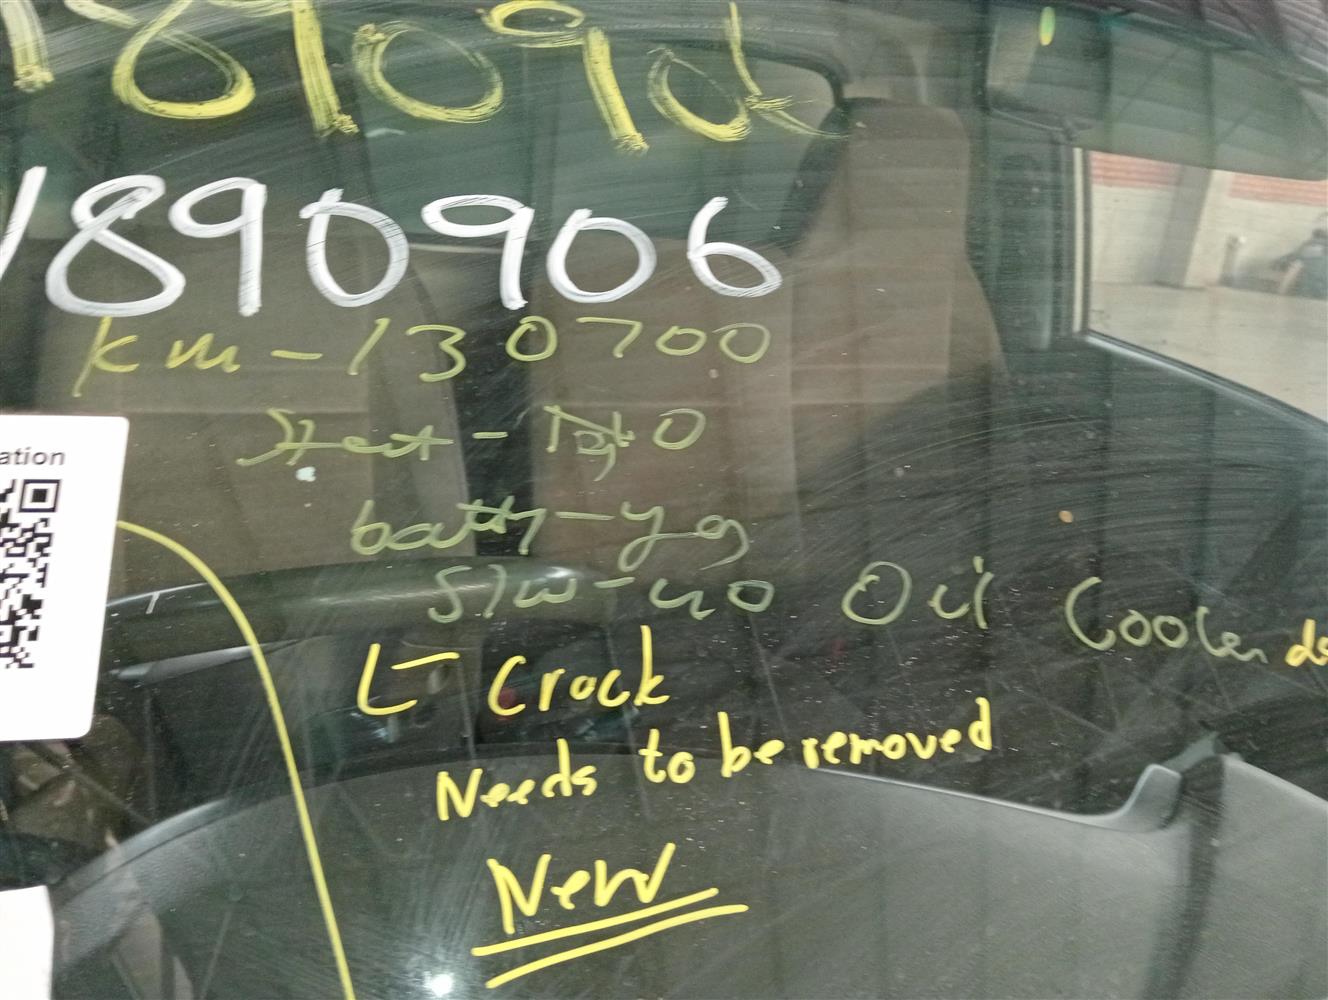 1890906
1890906
km - 130700
batty - yg
S/w - 40 Oil Cooler
L- Crack
Needs to be removed
New
ation